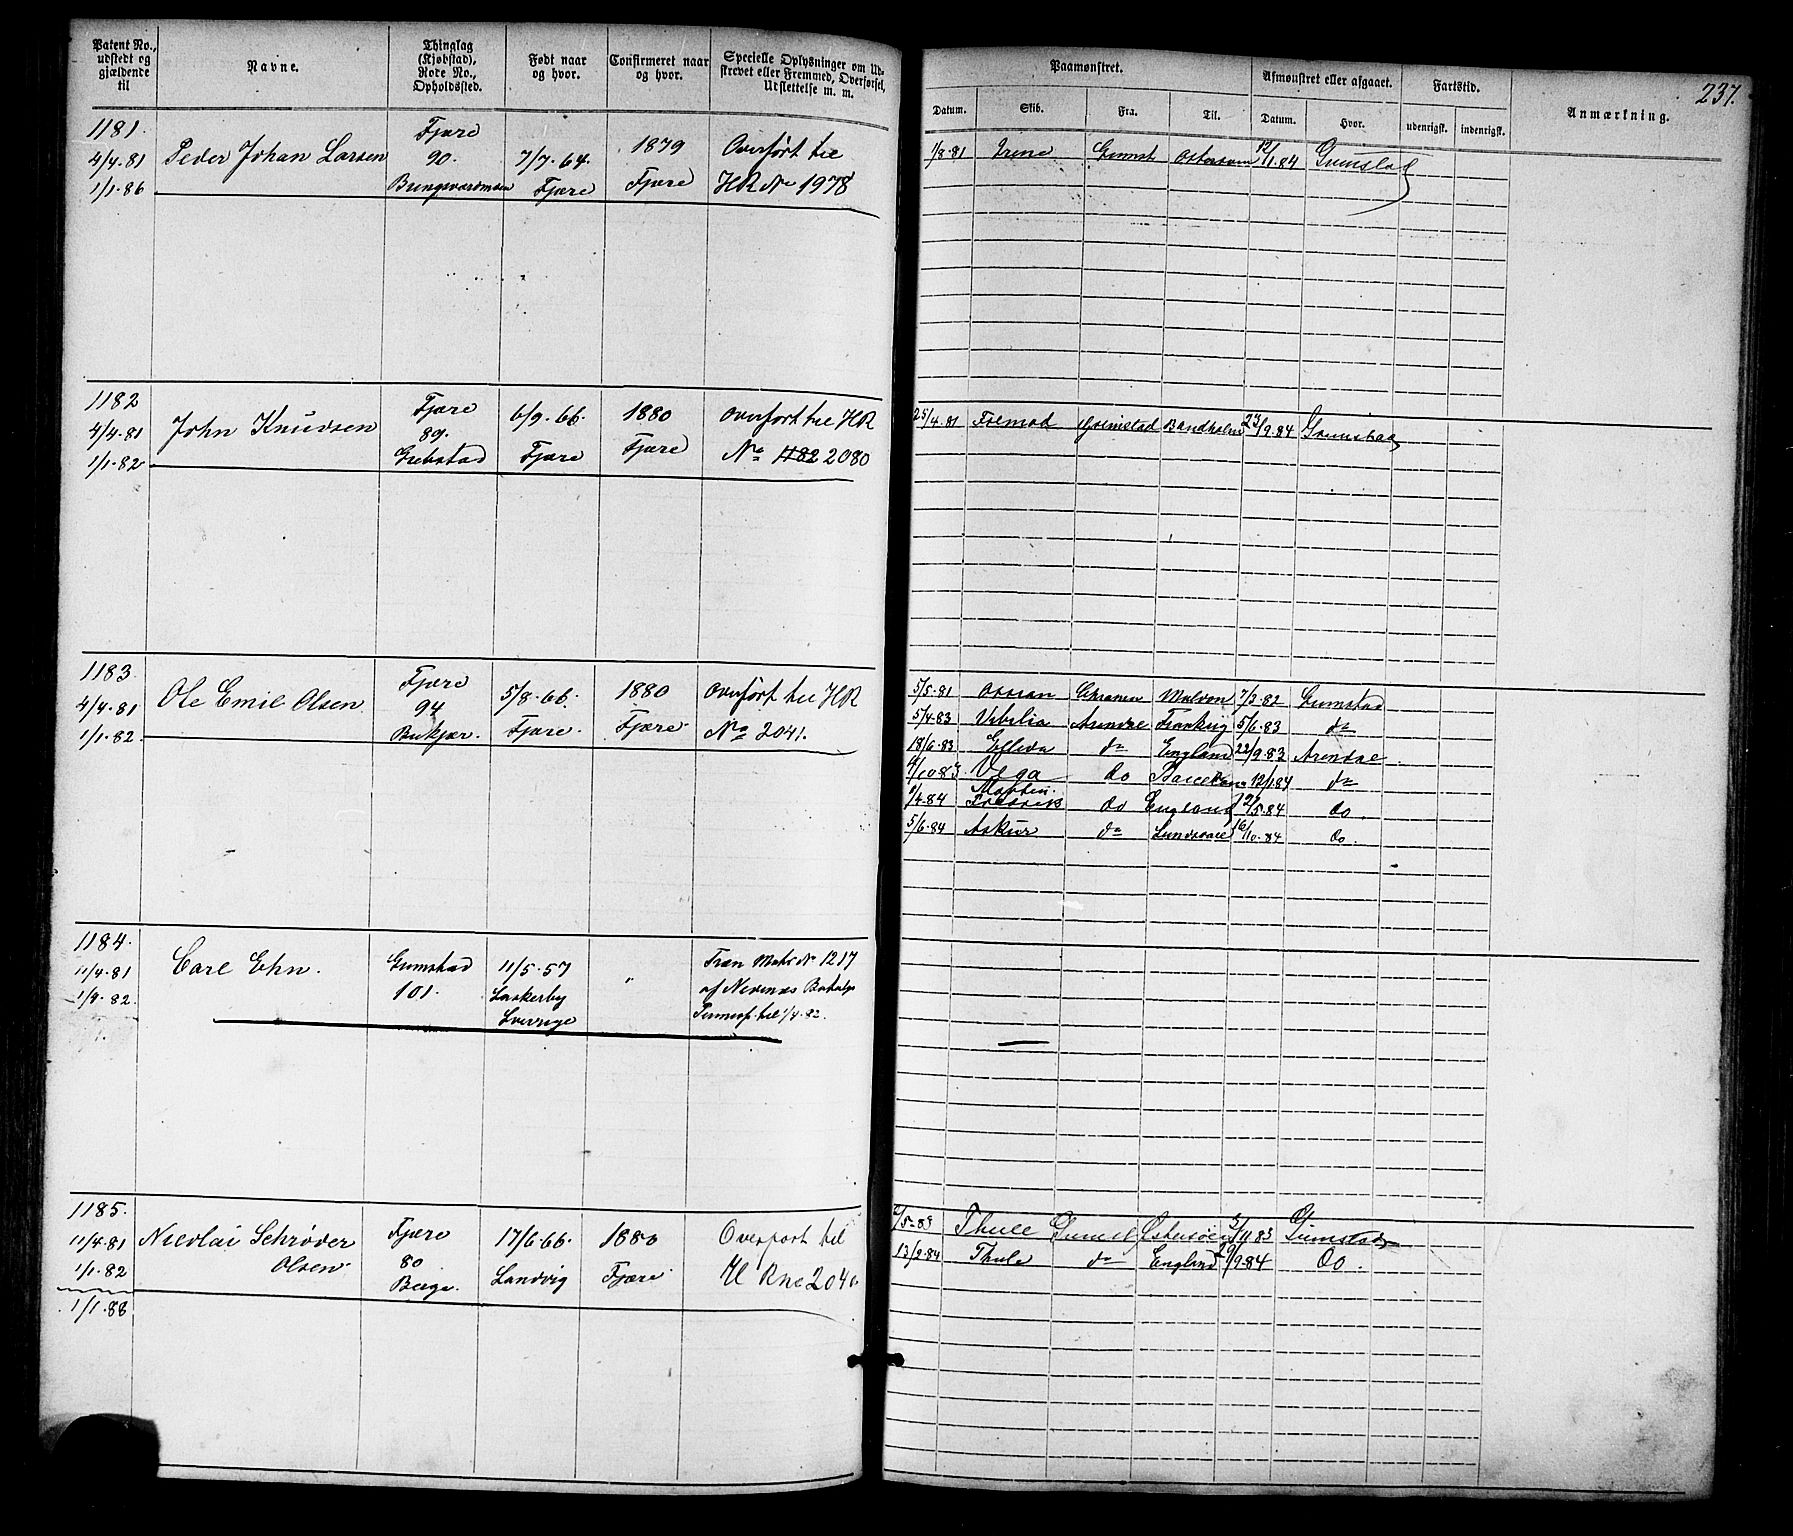 Patent No., udstedt og gjældende til
Navne.
Thinglag (Kjøbstad), Rode No., Opholdssted.
Født naar og hvor.
Confirmeret naar og hvor.
Specielle Oplysninger om Udskrevet eller Fremmed, Overførsel, Udslettelse m. m.
Paamønstret.
Datum. Skib. Fra. Til.
Afmønstret eller afgaaet.
Datum. Hvor.
Fartstid.
udenrigsk. indenrigsk.
Anmærkning.
237.
1181. Fjære
4/4.81 Peder Johan Larsen 90. 7/7.64. 1879 Overført til
1/1.86 Fjære Fjære HR No 1978
1/8 81 Irene Grimst Østersøen 12/1.84 Grimstad
1182 Fjære 6/9.66. 1880 Overført til HR
4/4.81 John Knudsen 89.
1/1.82 Fjære Fjære No 1182 2080
25/4.81 Grimstad Bandholm 23/9.84 Grimstad
1183. Fjære 5/8.66. 1880 Overført til HR
4/4.81 Ole Emil Olsen. 94 Fjære. Fjære. No 2041.
1/1.82. Bukjær.
5/5.81 Ossian Maldon 7/2.82 Grimstad
5/4.83 Vibilia Arendal Frankrig 5/6.83 do
18/6.83 do England 22/9.83 Arendal.
Vega do 12/1.84 do
1/4.84 Fredrik do England /5.84 do.
5/6.84 Askur do Sundsvall 16/10.84 do.
1184. Grimstad 11/5.57 " Træn Mats No 1217
11/4.81 Carl Ehn. 101. af Nedenæs
82. Sverrige til 1/4.82.
1185. Fjære 17/6.66. 1880 Overført til
11/4.81 Nicolai Schrøder 80
1/1.82 Olsen Landvig Fjære HRno 204
1/1.88
/5-83 Thule Østersøen 5/11.83 Grimstad
13/2.84 Thule do England /9.84 do.